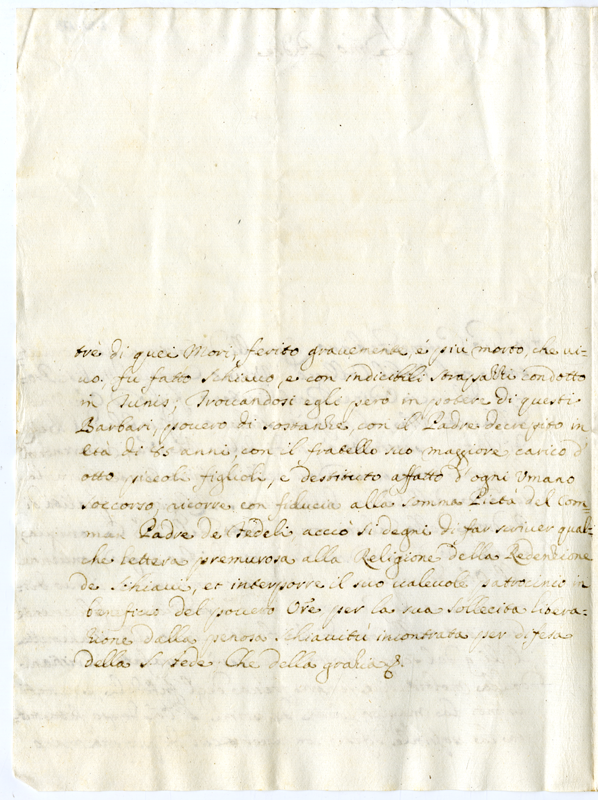 trè di quei Mori, ferito gravemente, é più morto, che ui=
uo. fù fatto schiauo, e con indicibili strapazzi condotto
in Tunis; Trouandosi egli però in potere di questi
Barbari, pouero di sostanze, con il Padre decrepito in
età di 85 anni, con il fratello suo maggiore carico d'
otto piccoli figlioli, e destituto affatto d'ogni Umano
soccorso; ricorre con fiducia alla somma Pietà del Com=
mun Padre de Fedeli acciò si degni di far scriuer qual=
che lettera premurosa alla Religione della Redenzione
de Schiaui, et interporre il suo ualeuole Patrocinio in
beneficio del pouero Ore per la sua sollecita libera=
zione dalla penosa schiauitù incontrata per difesa
della S. Fede Che della grazia